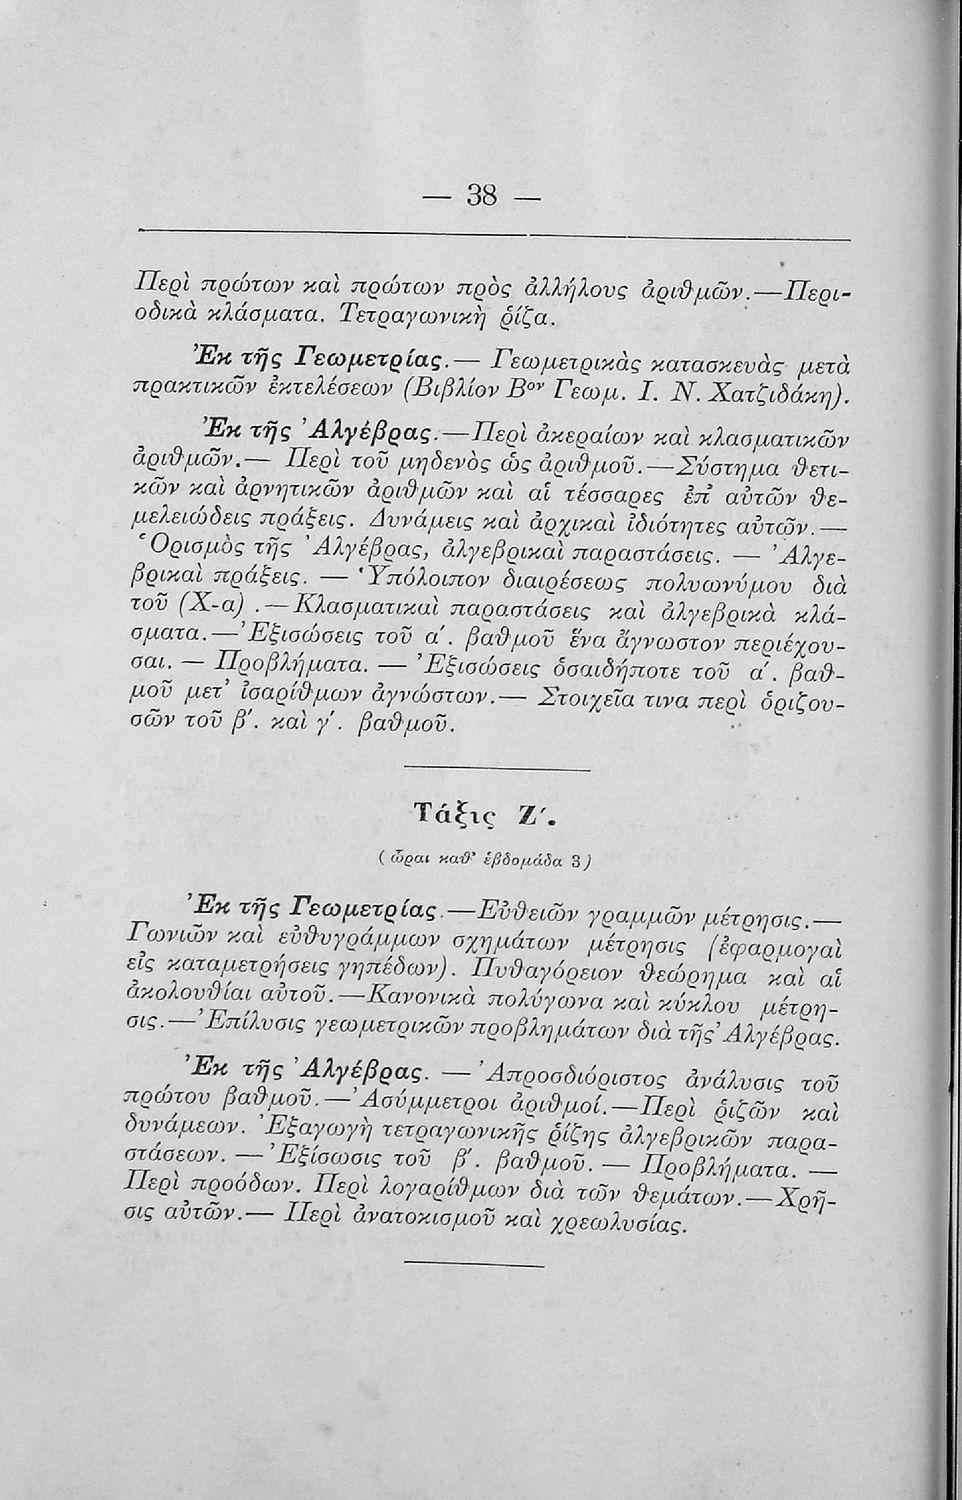 — 38 —
Περὶ πρώτων καὶ πρώτων πρὸς ἀλλήλους ἀριθμῶν.—Περι-
οδικὰ κλάσματα. Τετραγωνικὴ ῥίζα.
Ἐκ τῆς Γεωμετρίας.— Γεωμετρικὰς κατασκευὰς μετὰ
πρακτικῶν ἐκτελέσεων (Βιβλίον Βον Γεωμ. Ι. Ν. Χατζιδάκη).
Ἐκ τῆς Ἀλγέβρας.—Περὶ ἀκεραίων καὶ κλασματικῶν
ἀριθμῶν.— Περὶ τοῦ μηδενὸς ὡς ἀριθμοῦ.—Σύστημα θετι-
κῶν καὶ ἀρνητικῶν ἀριθμῶν καὶ αἱ τέσσαρες ἐπ' αὐτῶν θε-
μελειώδεις πράξεις. Δυνάμεις καὶ ἀρχικαὶ ἰδιότητες αὐτῶν.—
Ὁρισμὸς τῆς Ἀλγέβρας, ἀλγεβρικαὶ παραστάσεις. — Ἀλγε-
βρικαὶ πράξεις. — Ὑπόλοιπον διαιρέσεως πολυωνύμου διὰ
τοῦ (Χ-α) .—Κλασματικαὶ παραστάσεις καὶ ἀλγεβρικὰ κλά-
σματα.—Ἐξισώσεις τοῦ α΄. βαθμοῦ ἕνα ἄγνωστον περιέχου-
σαι. — Προβλήματα. — Ἐξισώσεις ὁσαιδήποτε τοῦ α΄. βαθ-
μοῦ μετ' ἰσαρίθμων ἀγνώστων.— Στοιχεῖα τινα περὶ ὁριζου-
σῶν τοῦ β΄. καὶ γ΄. βαθμοῦ.
Τάξις Ζ΄.
( ὧραι καθ' ἑβδομάδα 3)
Ἐκ τῆς Γεωμετρίας.—Εὐθειῶν γραμμῶν μέτρησις.—
Γωνιῶν καὶ εὐθυγράμμων σχημάτων μέτρησις (ἐφαρμογαὶ
εἰς καταμετρήσεις γηπέδων). Πυθαγόρειον θεώρημα καὶ αἱ
ἀκολουθίαι αὐτοῦ.—Κανονικὰ πολύγωνα καὶ κύκλου μέτρη-
σις.—Ἐπίλυσις γεωμετρικῶν προβλημάτων διὰ τῆς Ἀλγέβρας.
Ἐκ τῆς Ἀλγέβρας. — Ἀπροσδιόριστος ἀνάλυσις τοῦ
πρώτου βαθμοῦ.—Ἀσύμμετροι ἀριθμοί.—Περὶ ῥιζῶν καὶ
δυνάμεων. Ἐξαγωγὴ τετραγωνικῆς ῥίζης ἀλγεβρικῶν παρα-
στάσεων. — Ἐξίσωσις τοῦ β΄. βαθμοῦ. — Προβλήματα. —
Περὶ προόδων. Περὶ λογαρίθμων διὰ τῶν θεμάτων.—Χρῆ-
σις αὐτῶν.— Περὶ ἀνατοκισμοῦ καὶ χρεωλυσίας.